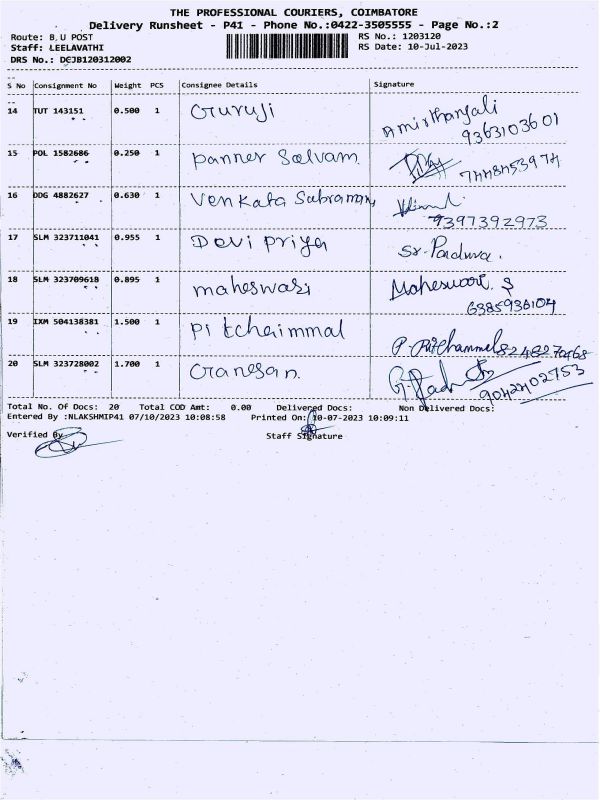 THE PROFESSIONAL COURIERS, COIMBATORE
Delivery Runsheet - P41 - Phone No.:0422-3505555 - Page No.:2
Route: B.U POST RS No.: 1203120
Staff: LEELAVATHI RS Date: 10-Jul-2023
DRS No.: DCJB120312002
S No Consignment No Weight PCS Consignee Details Signature
14 TUT 143151 0.500 1 Guruji Amirthanjali
9363103601
15 POL 1582686 0.250 1 panner Selvam 7448453974
16 DDG 4882627 0.630 1 Venkata Subramani
9397392973
17 SLM 323711041 0.955 1 Devi priya
18 SLM 323709618 0.895 1 maheswari Maheswari. S
6385936104
19 IXM 504138381 1.500 1 pitchaimmal P. Pitchammal 8248270468
20 SLM 323728002 1.700 1 Ganesan.
9042402753
Total No. Of Docs: 20 Total COD Amt: 0.00 Delivered Docs: Non Delivered Docs:
Entered By :NLAKSHMIP41 07/10/2023 10:08:58 Printed On: 10-07-2023 10:09:11
Verified By Staff Signature